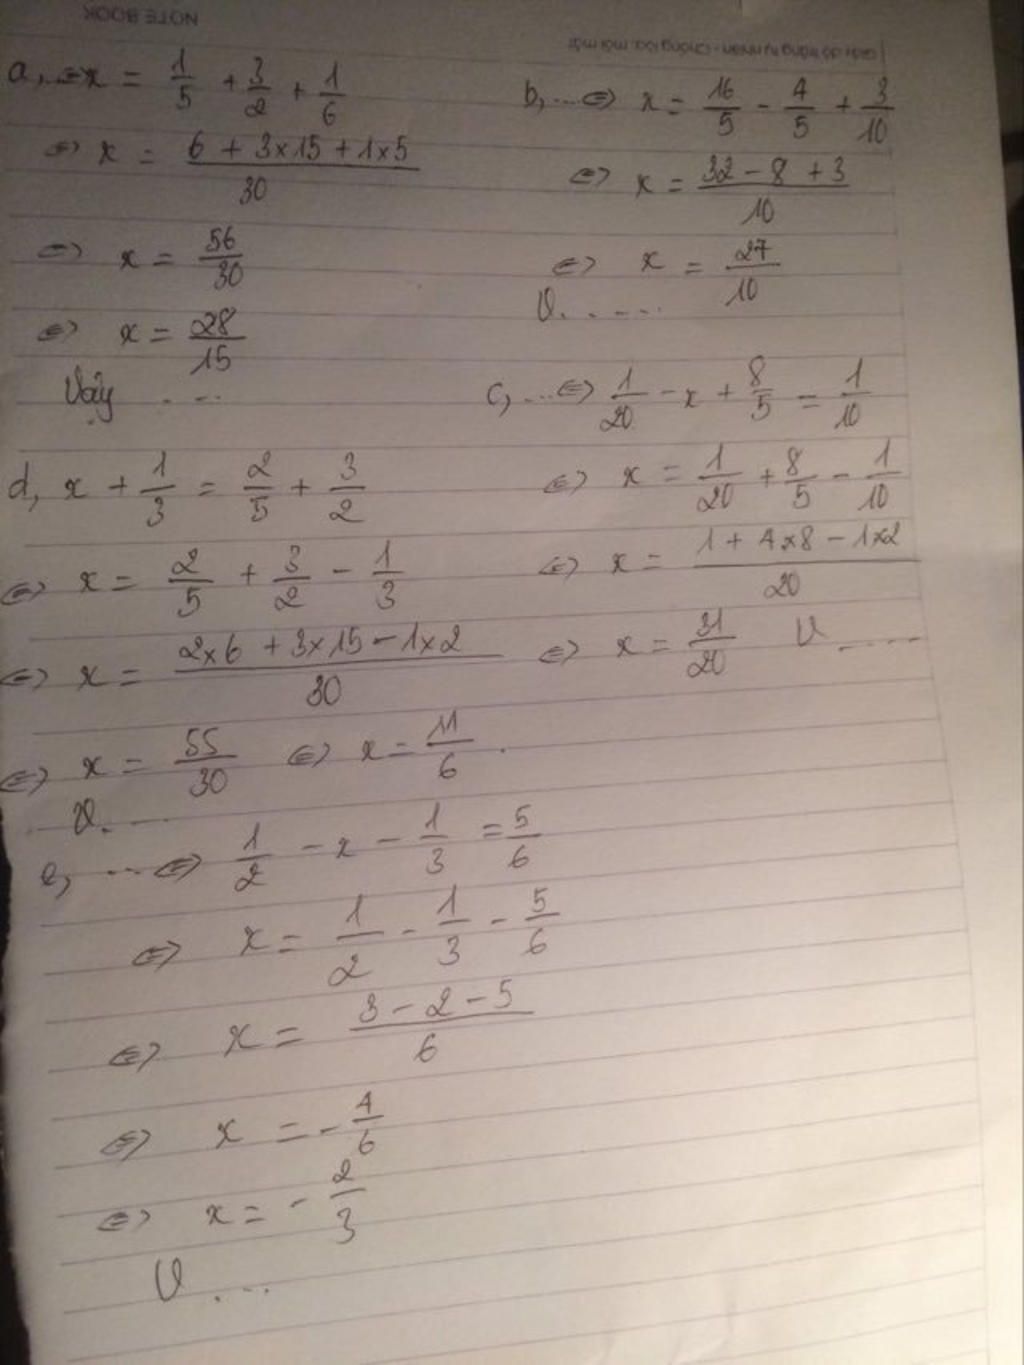 NOTE BOOK
a, ⇔ x = 1/5 + 3/2 + 1/6
⇔ x = (6 + 3×15 + 1×5)/30
⇔ x = 56/30
⇔ x = 28/15
Vậy ...
b, ... ⇔ x = 16/5 - 4/5 + 3/10
⇔ x = (32 - 8 + 3)/10
⇔ x = 27/10
V. ....
c, ... ⇔ 1/20 - x + 8/5 = 1/10
⇔ x = 1/20 + 8/5 - 1/10
⇔ x = (1 + 4×8 - 1×2)/20
⇔ x = 31/20 V ....
d, x + 1/3 = 2/5 + 3/2
⇔ x = 2/5 + 3/2 - 1/3
⇔ x = (2×6 + 3×15 - 1×2)/30
⇔ x = 55/30 ⇔ x = 11/6 .
V. ...
e, ... ⇔ 1/2 - x - 1/3 = 5/6
⇔ x = 1/2 - 1/3 - 5/6
⇔ x = (3 - 2 - 5)/6
⇔ x = - 4/6
⇔ x = - 2/3
V ...